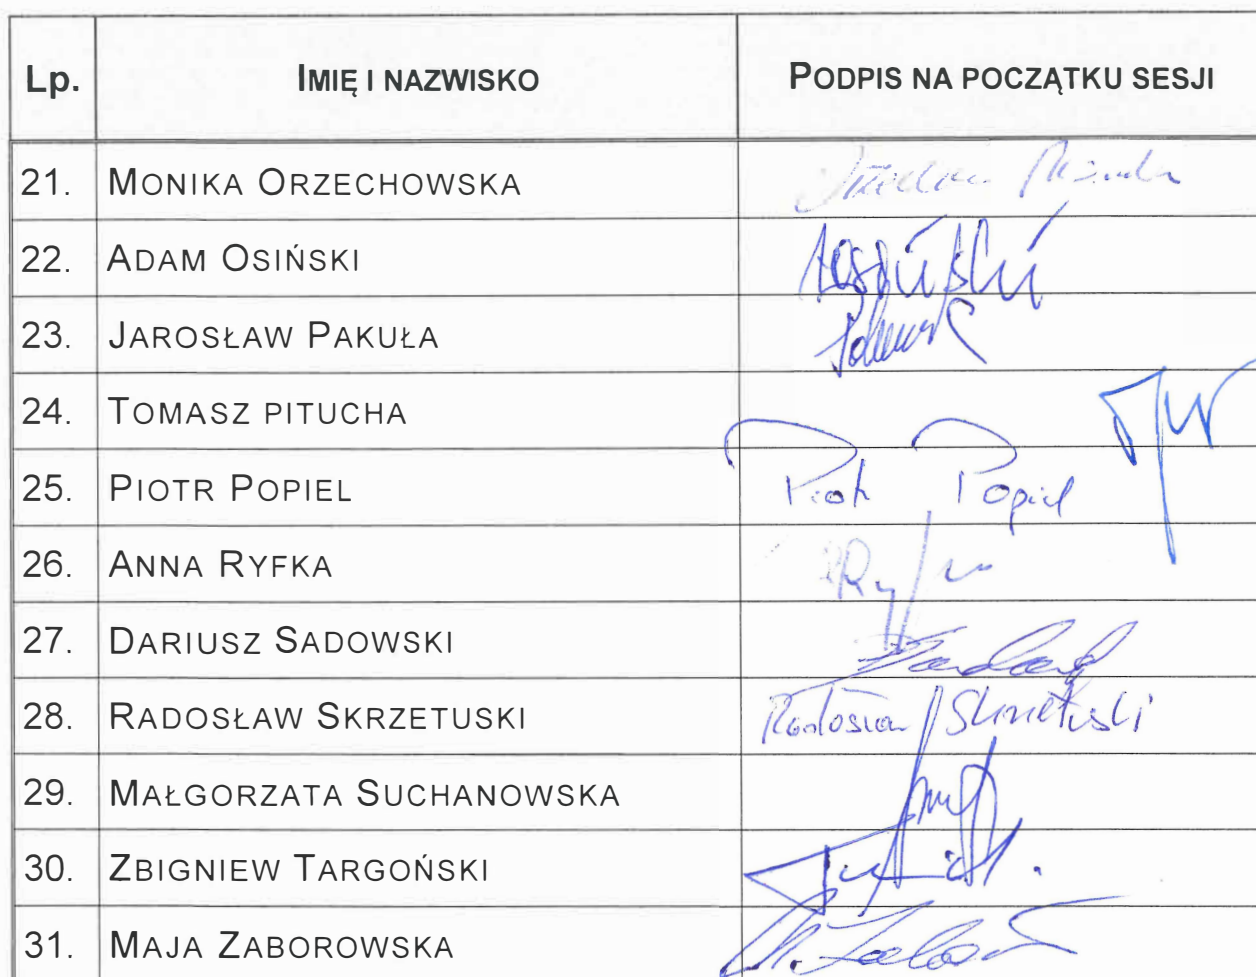 Lp. IMIĘ I NAZWISKO PODPIS NA POCZĄTKU SESJI
21. MONIKA ORZECHOWSKA
22. ADAM OSIŃSKI
23. JAROSŁAW PAKUŁA
24. TOMASZ PITUCHA
25. PIOTR POPIEL Piotr Popiel
26. ANNA RYFKA
27. DARIUSZ SADOWSKI
28. RADOSŁAW SKRZETUSKI Radosław Skrzetuski
29. MAŁGORZATA SUCHANOWSKA
30. ZBIGNIEW TARGOŃSKI
31. MAJA ZABOROWSKA